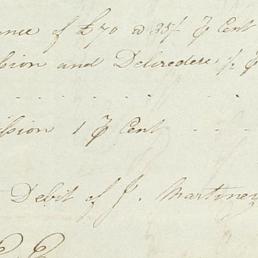 nce of £70 @ 35/ ⅌ Cent
ssion and Delcredere
ission 1 ⅌ Cent
Debit of J. Martinez
E. E.